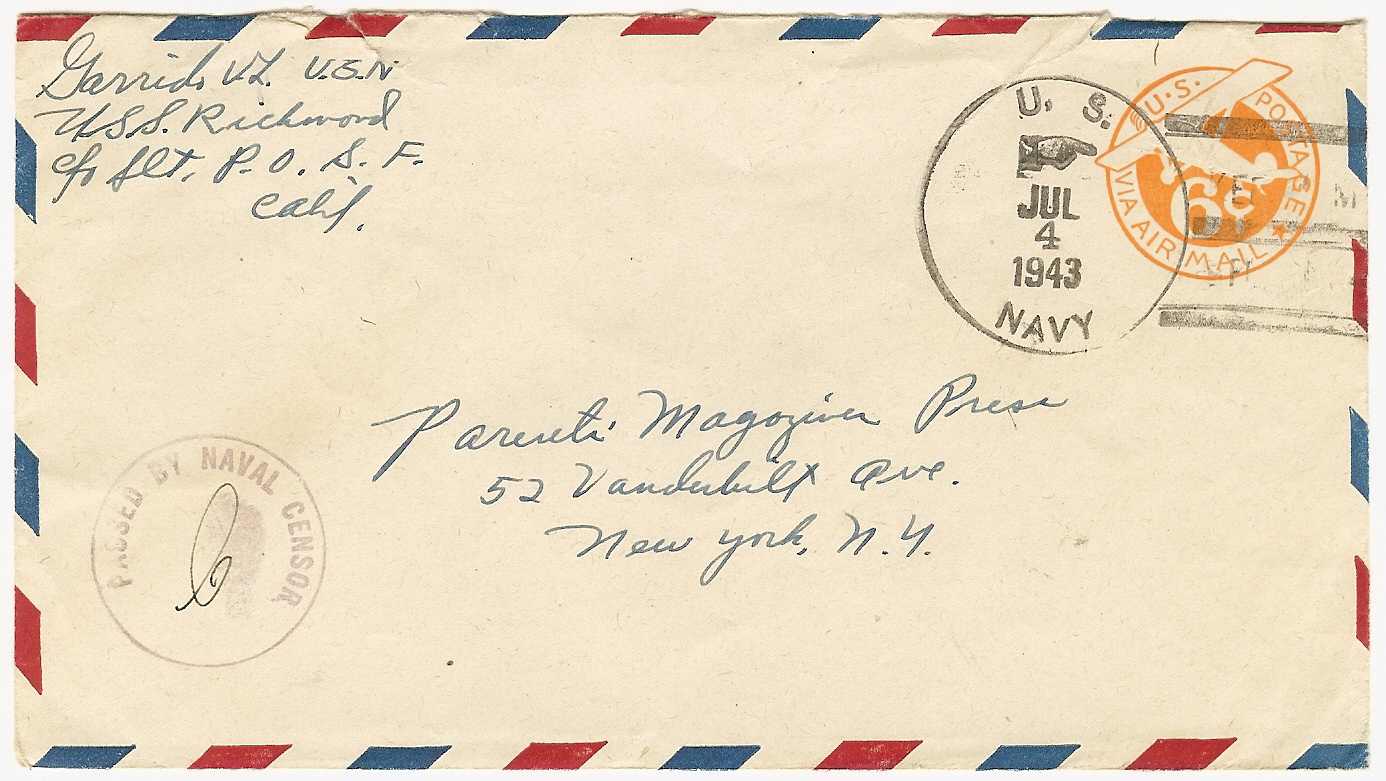 Garrido V.L. U.S.N
USS. Richmond
c/o Flt. P. O. S. F.
Calif.
U. S.
JUL
4
1943
NAVY
U.S. POSTAGE
6¢
VIA AIR MAIL
Parents' Magazine Press
52 Vanderbilt Ave.
New York, N.Y.
PASSED BY NAVAL CENSOR